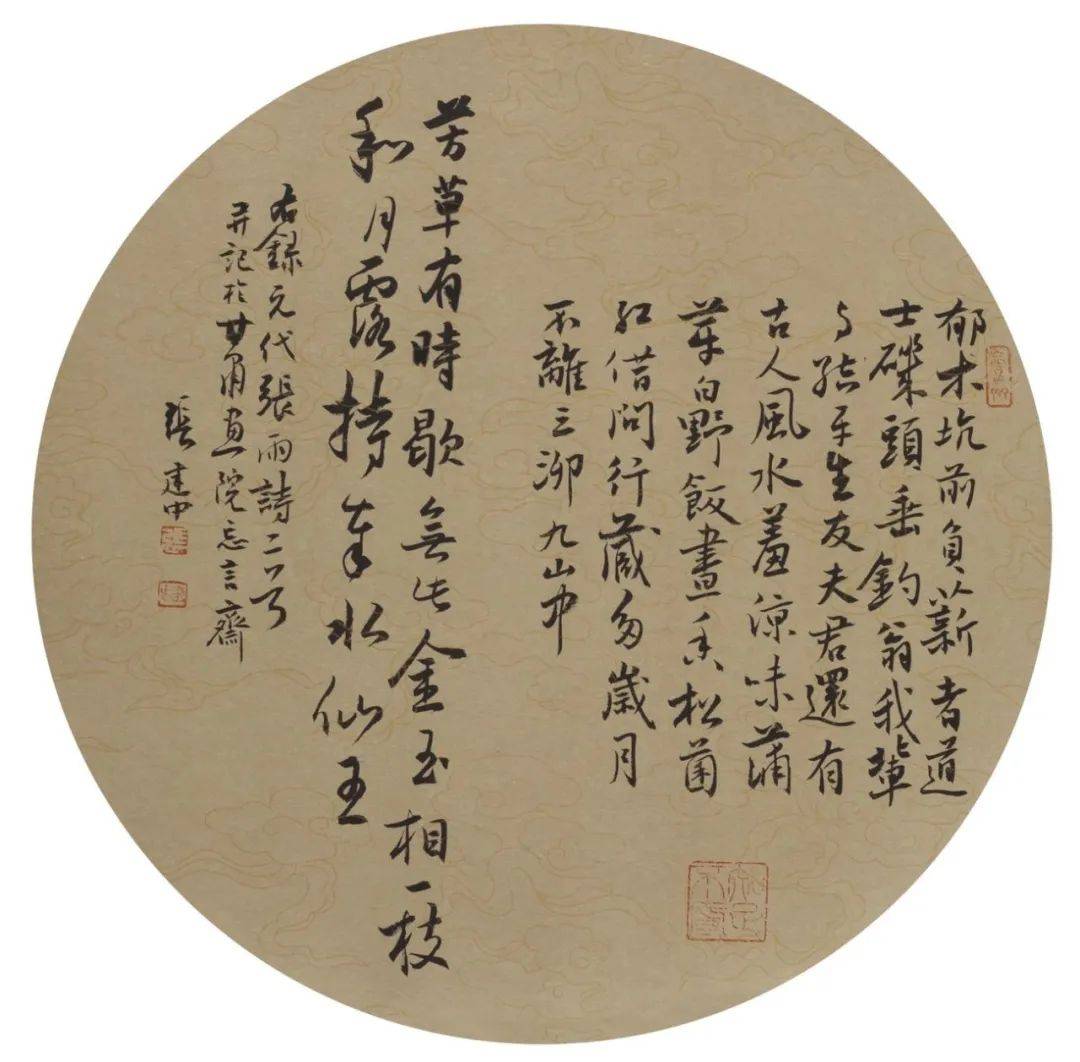 郁术坑前負薪者道
士磯頭垂釣翁我輩
与平生友夫君還有
古人風水羞涼味蒲
芽白野飯晝香松菌
紅借問行藏多歲月
不離三泖九山中
芳草有時歇無此金玉相一枝
和月露持奉水仙王
右錄元代張雨詩二首
并記於甘肅畫院忘言齋
張建中